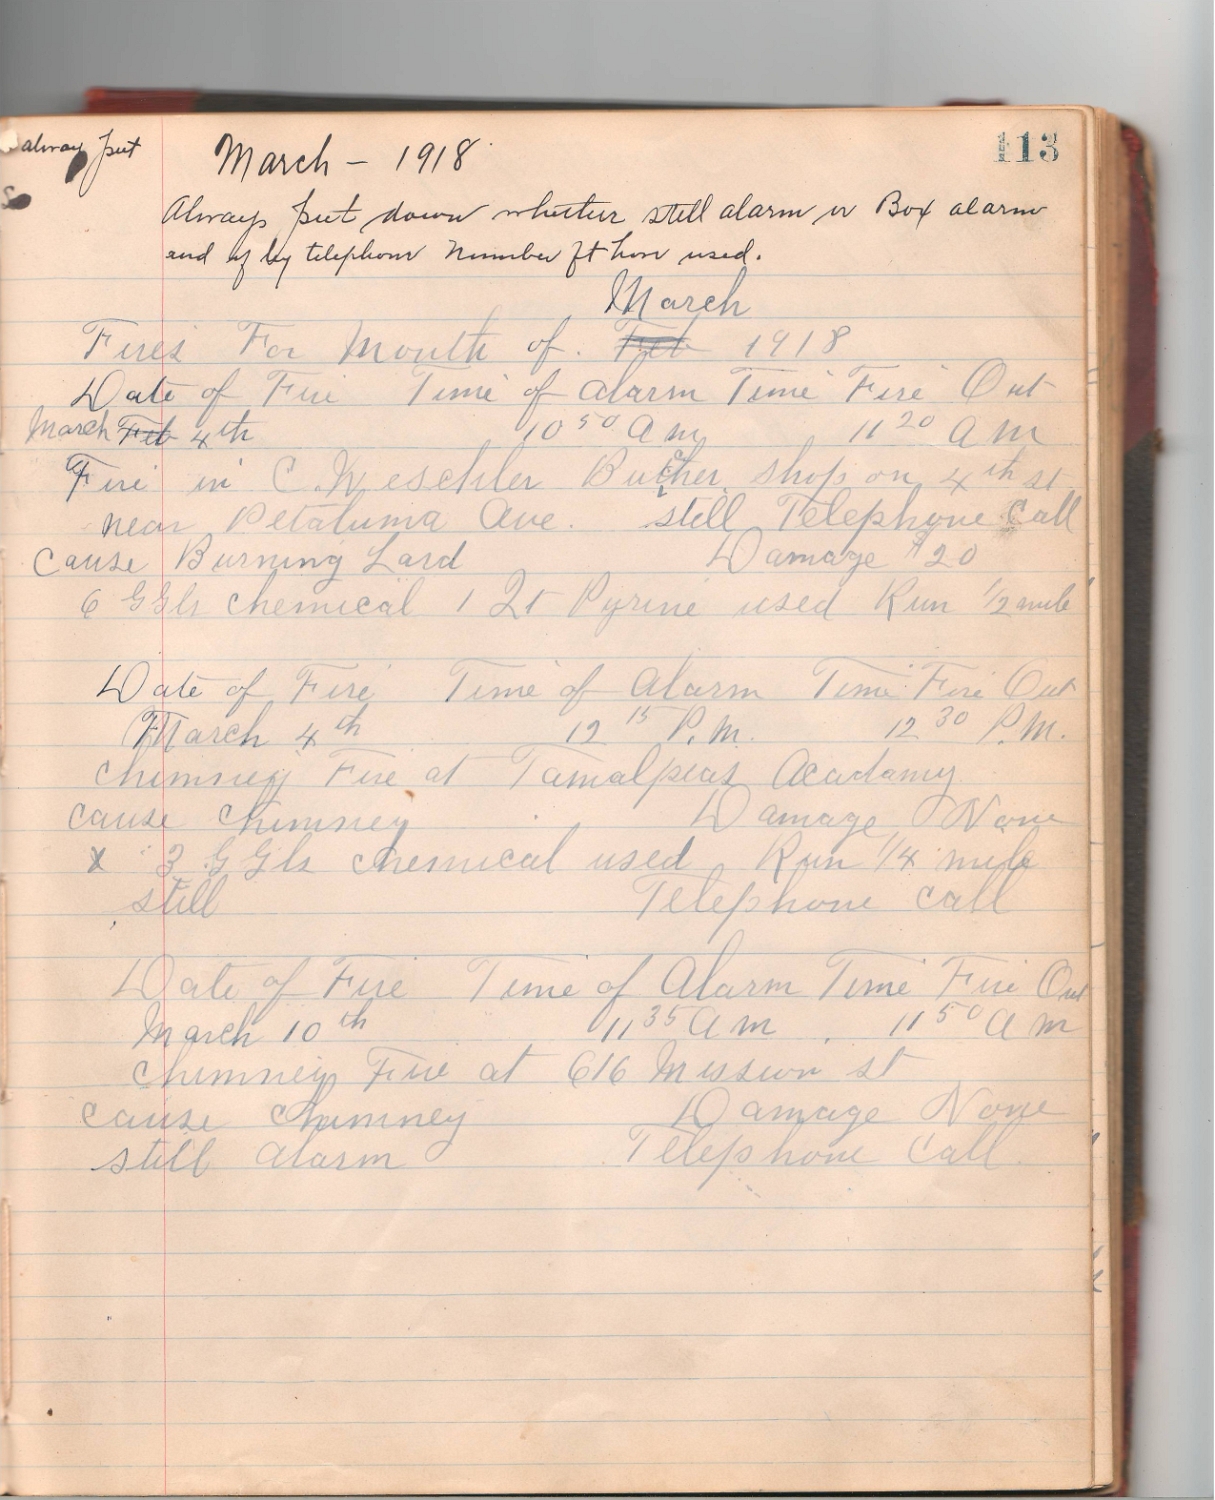 alway put
March - 1918
113
So
Always put down whether still alarm or Box alarm
and if by telephone Number ft hose used.
March
Fires For Month of. Feb 1918
Date of Fire Time of Alarm Time Fire Out
March Feb 4th 10 50 A m 11 20 A M
Fire in C. Weschler Butcher shop on 4th st
near Petaluma Ave. still Telephone Call
Cause Burning Lard Damage $20
6 GGls Chemical 1 Qt Pyrine used Run 1/2 mile
Date of Fire Time of Alarm Time Fire Out
March 4th 12 15 P.M. 12 30 P.M.
Chimney Fire at Tamalpeas Acadamy
Cause Chimney Damage None
x 3 GGls Chemical used Run 1/4 mile
still Telephone Call
Date of Fire Time of Alarm Time Fire Out
March 10th 11 35 A m 11 50 A m
Chimney Fire at 616 Mission st
Cause Chimney Damage None
still Alarm Telephone Call